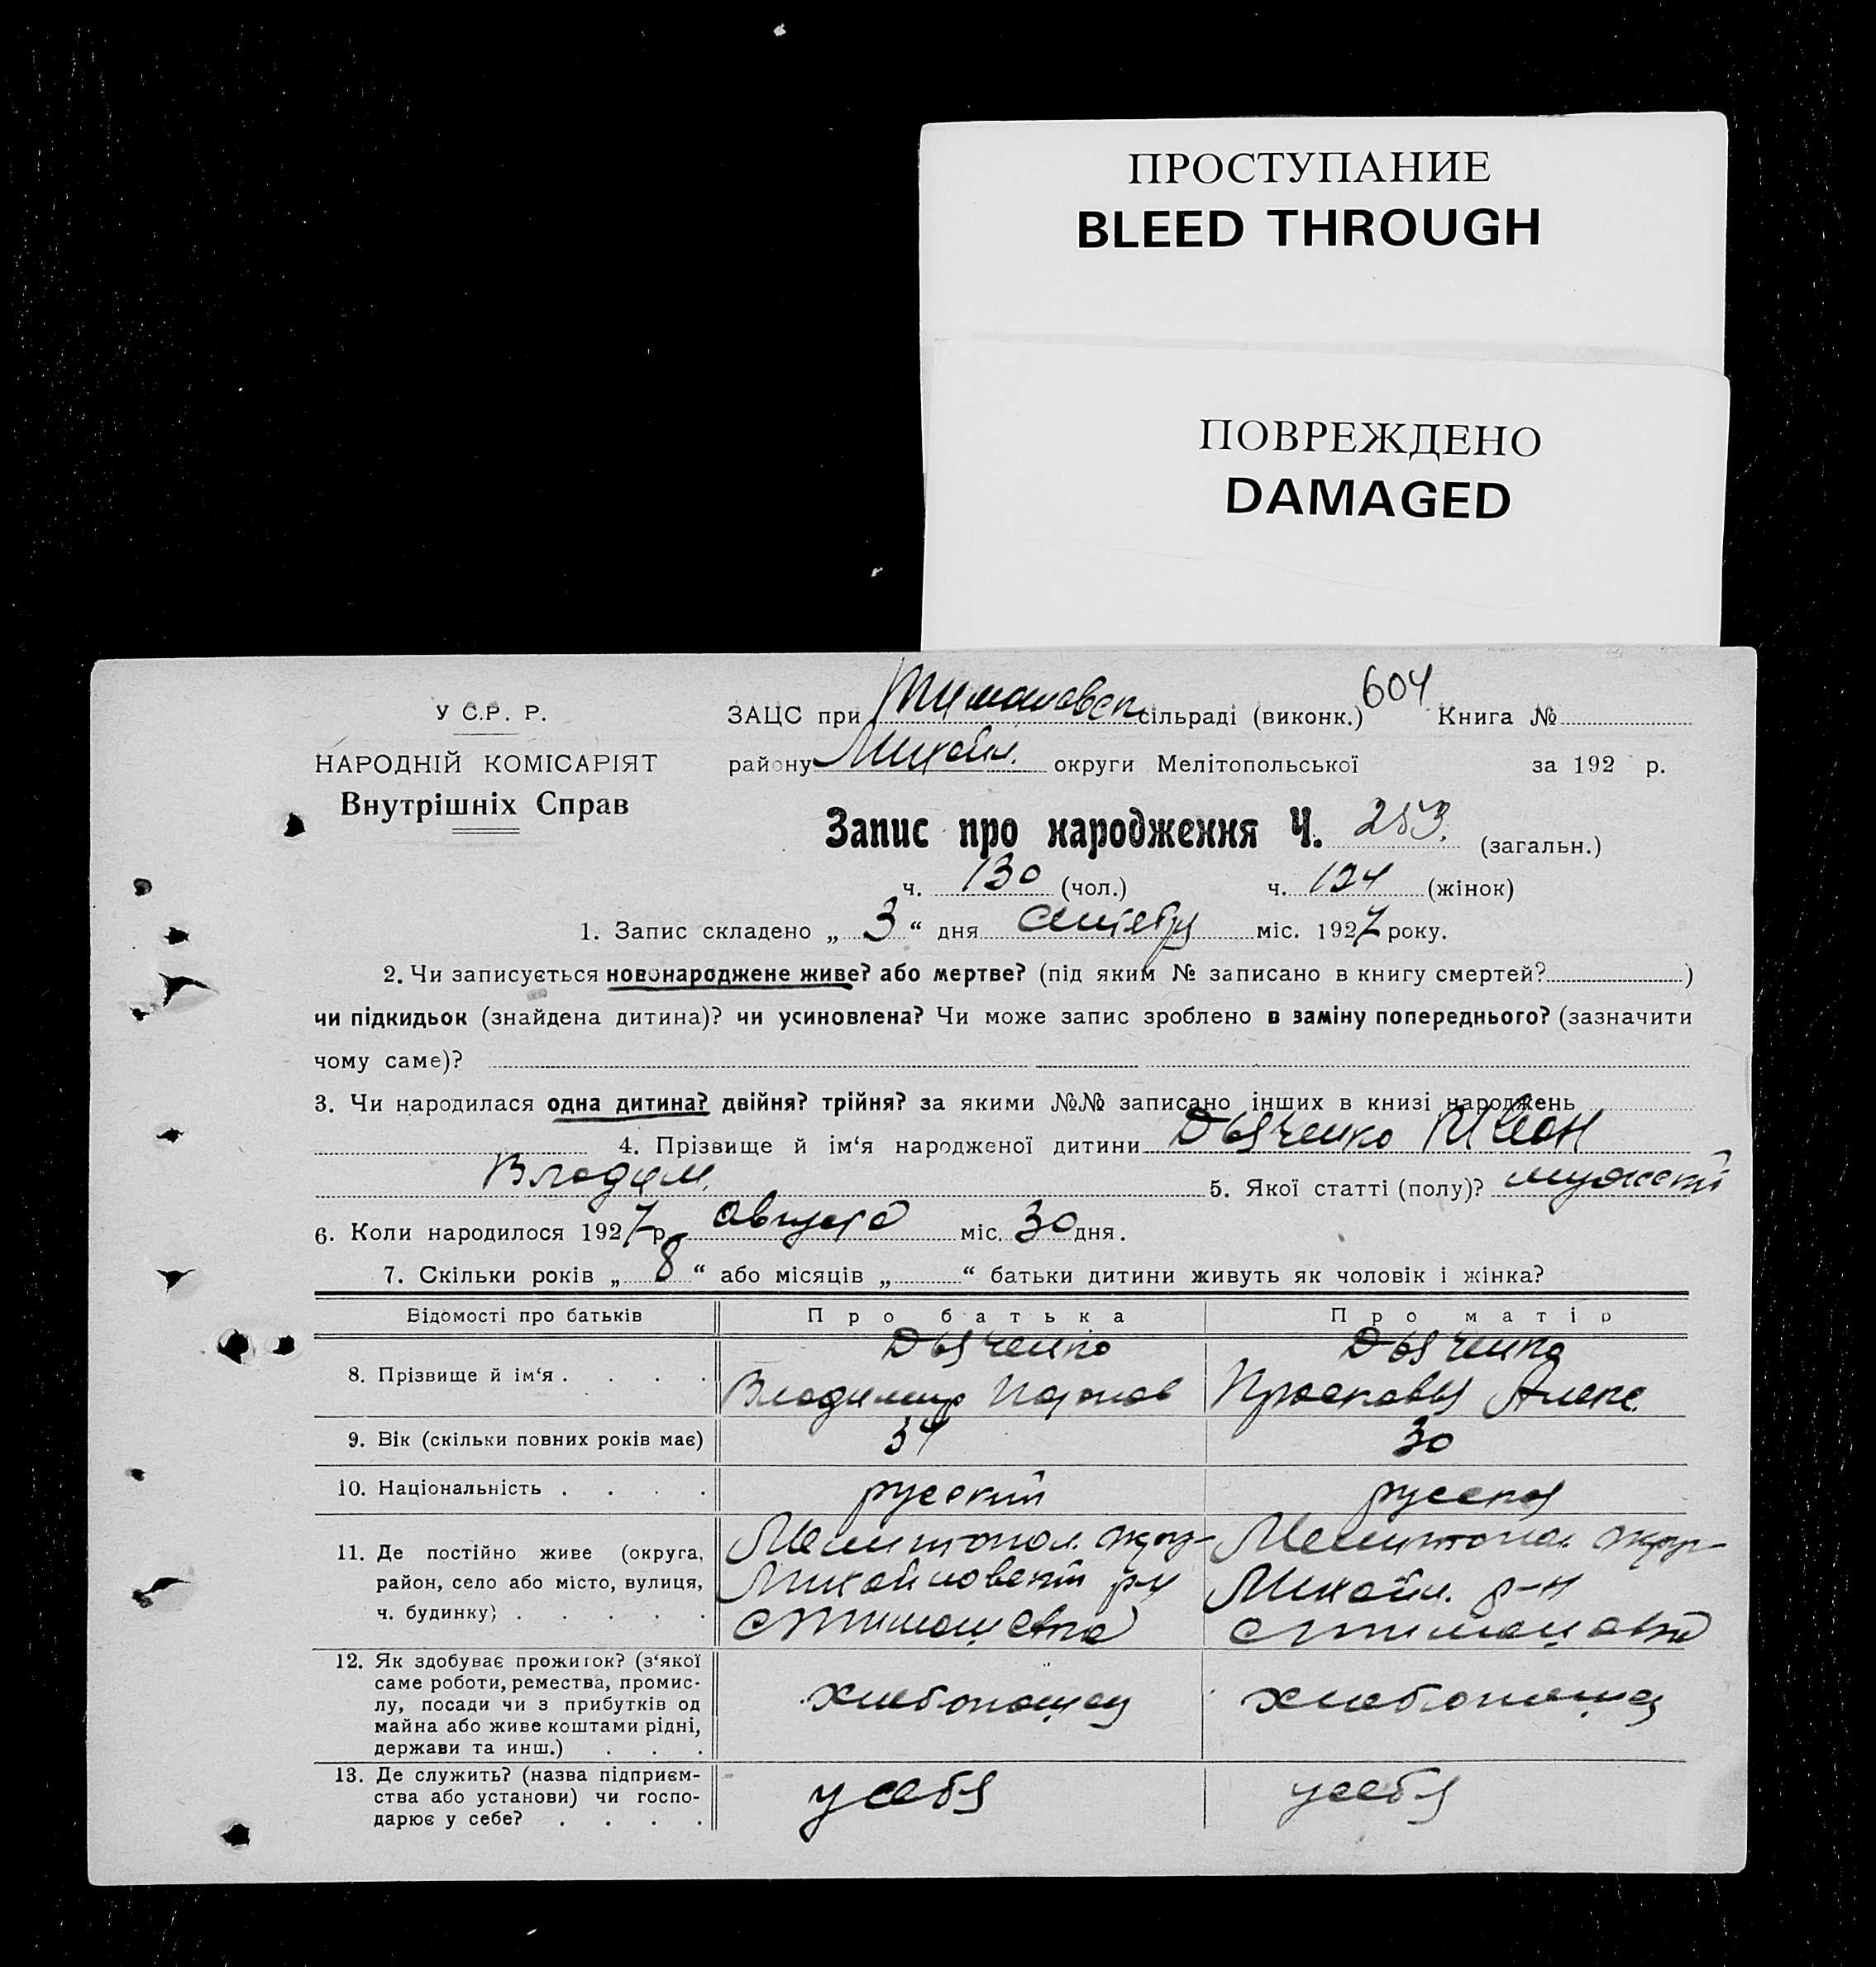 ПРОСТУПАНИЕ
BLEED THROUGH
ПОВРЕЖДЕНО
DAMAGED
У С.Р. Р.
НАРОДНІЙ КОМІСАРІЯТ
Внутрішніх Справ
604
ЗАЦС при Тимошовск сільраді (виконк.) Книга №
району Михайл. округи Мелітопольської за 192 р.
Запис про народження Ч. 253. (загальн.)
ч. 130 (чол.) ч. 124 (жінок)
1. Запис складено „ 3 “ дня сентября міс. 1927 року.
2. Чи записується новонароджене живе? або мертве? (під яким № записано в книгу смертей? )
чи підкидьок (знайдена дитина)? чи усиновлена? Чи може запис зроблено в заміну попереднього? (зазначити
чому саме)?
3. Чи народилася одна дитина? двійня? трійня? за якими №№ записано інших в книзі народжень
4. Прізвище й ім‘я народженої дитини Дьяченко Иван
Владим. 5. Якої статті (полу)? мужской
6. Коли народилося 1927 р. августа міс. 30 дня.
7. Скільки років „ 8 “ або місяців „ “ батьки дитини живуть як чоловік і жінка?
Відомості про батьків Про батька Про матір
8. Прізвище й ім‘я . . . . Дьяченко Дьяченко
Владимир Прасковья Алекс.
9. Вік (скільки повних років має) 34 30
10. Національність . . . . русский русская
11. Де постійно живе (округа, Мелитопол. окру- Мелитопол. окру-
район, село або місто, вулиця, Михайловский р-н Михайл. р-н
ч. будинку) . . . . . с Тимошевка с Тимошовка
12. Як здобуває прожиток? (з‘якої
саме роботи, ремества, промис-
лу, посади чи з прибутків од хлебопашец хлебопашец
майна або живе коштами рідні,
держави та инш.) . . .
13. Де служить? (назва підприєм-
ства або установи) чи госпо- у себя у себя
дарює у себе? . . . .